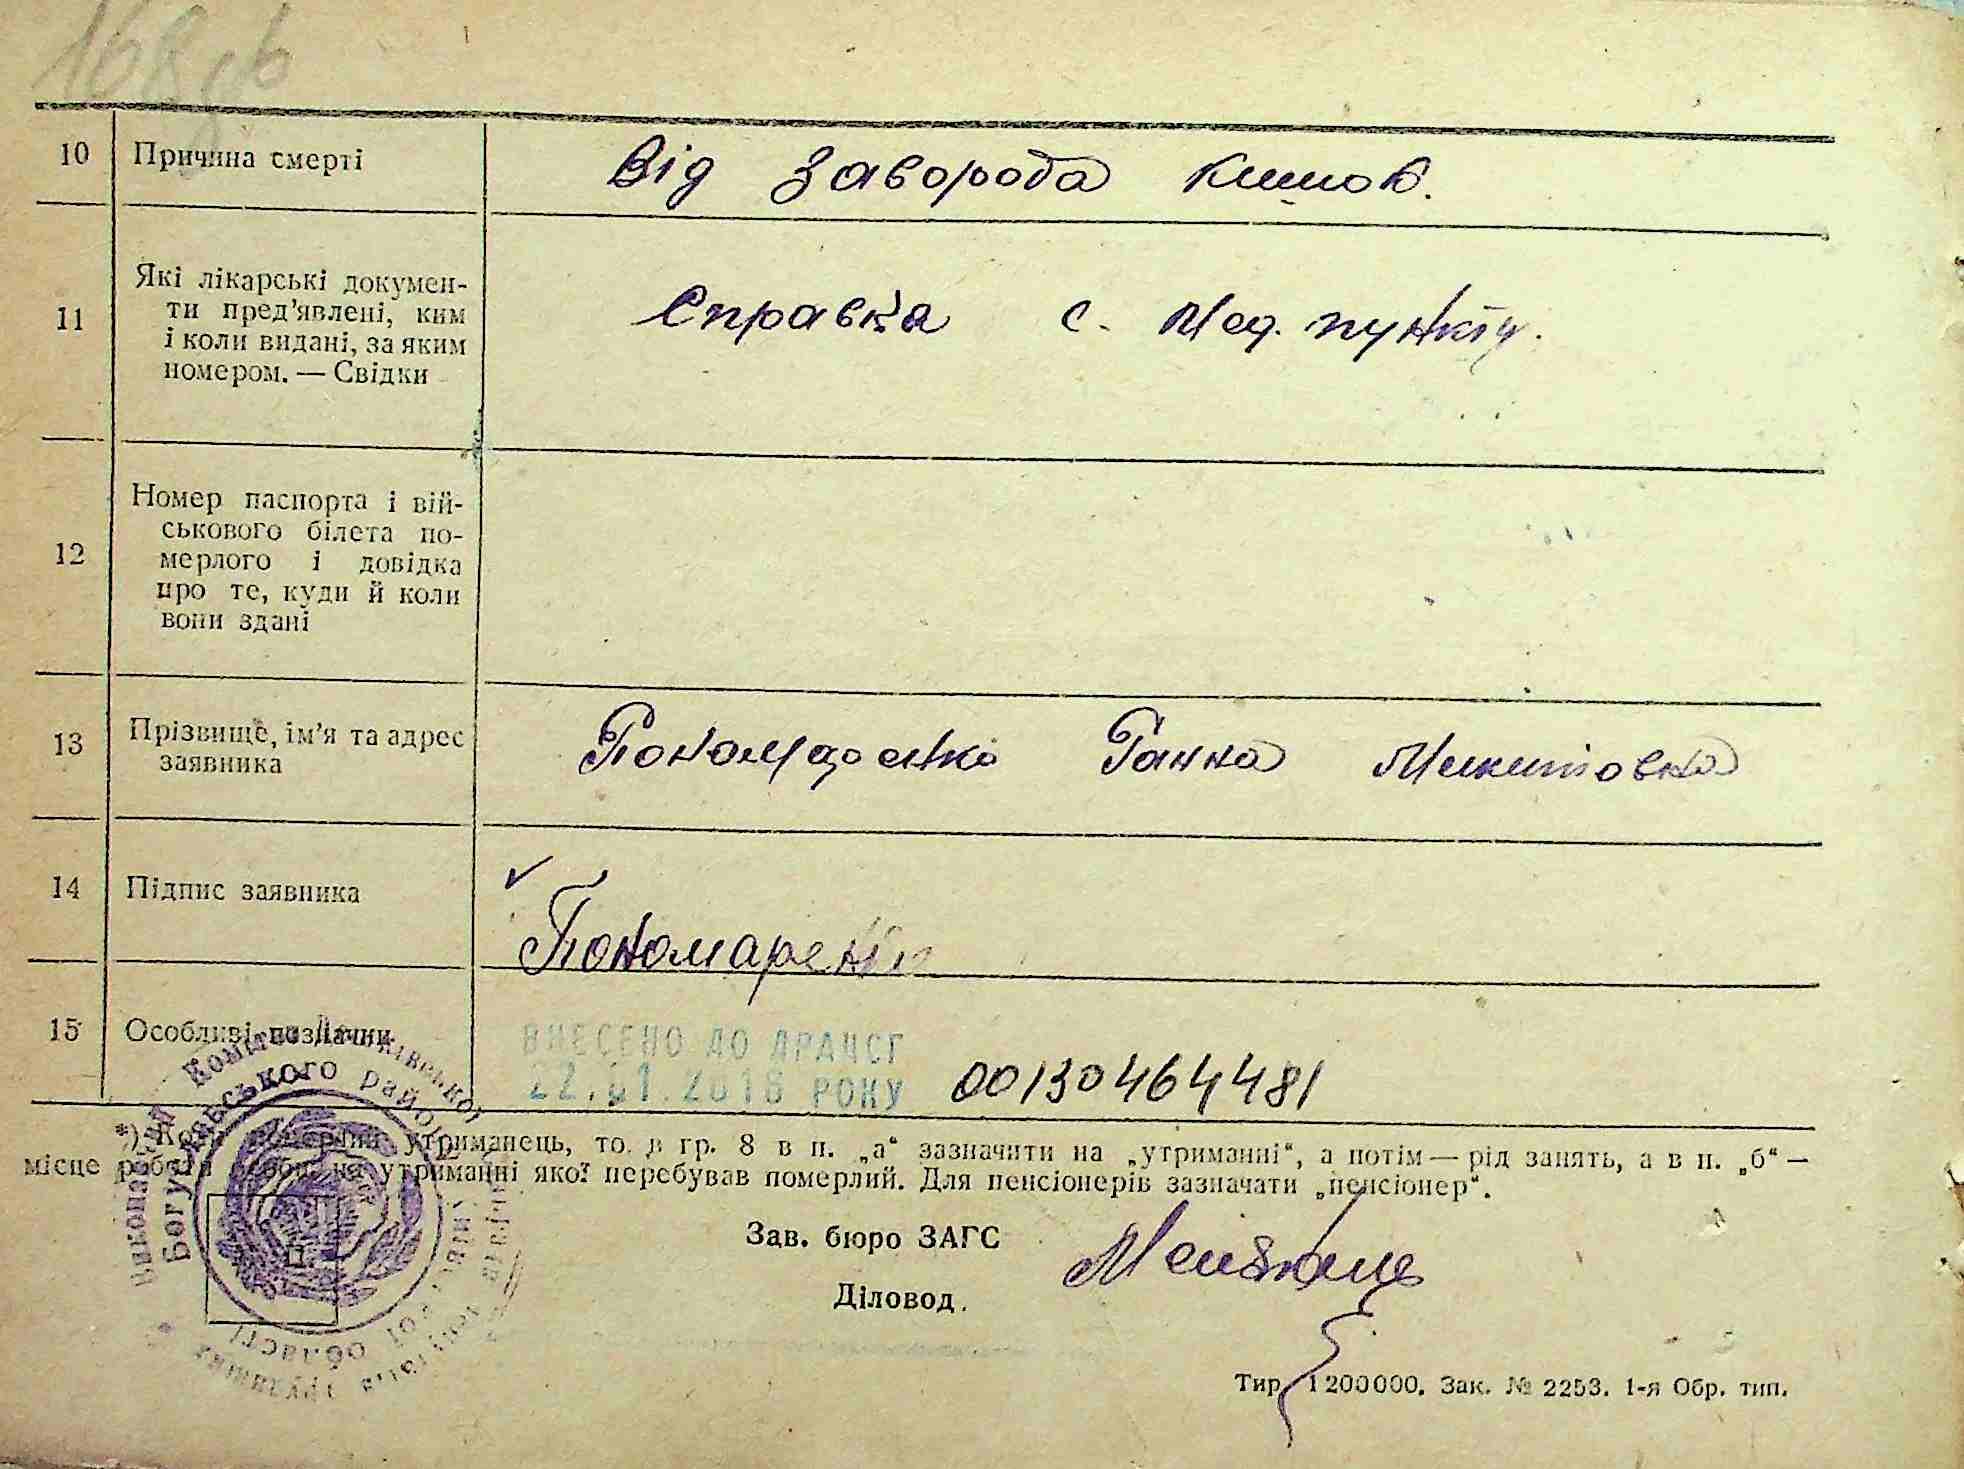 168
10 Причина смерті Від заворота кишок.
11 Які лікарські докумен-
ти пред'явлені, ким
і коли видані, за яким
номером. — Свідки
Справка с. Мед. пункту.
12 Номер паспорта і вій-
ськового білета по-
мерлого і довідка
про те, куди й коли
вони здані
13 Прізвище, ім'я та адрес
заявника
Пономаренко Ганна Микитовна
14 Підпис заявника
Пономаренко
15 Особливі позначки
ВНЕСЕНО ДО ДРАЦСГ
22.01.2018 РОКУ 00130464481
*) Коли померлий утриманець, то в гр. 8 в п. „а“ зазначити на „утриманні“, а потім — рід занять, а в п. „б“ —
місце роботи особи, на утриманні якої перебував померлий. Для пенсіонерів зазначати „пенсіонер“.
Виконавчий Комітет
Богуславського району
області
Зав. бюро ЗАГС
Діловод.
Тир. 1200000. Зак. № 2253. 1-я Обр. тип.